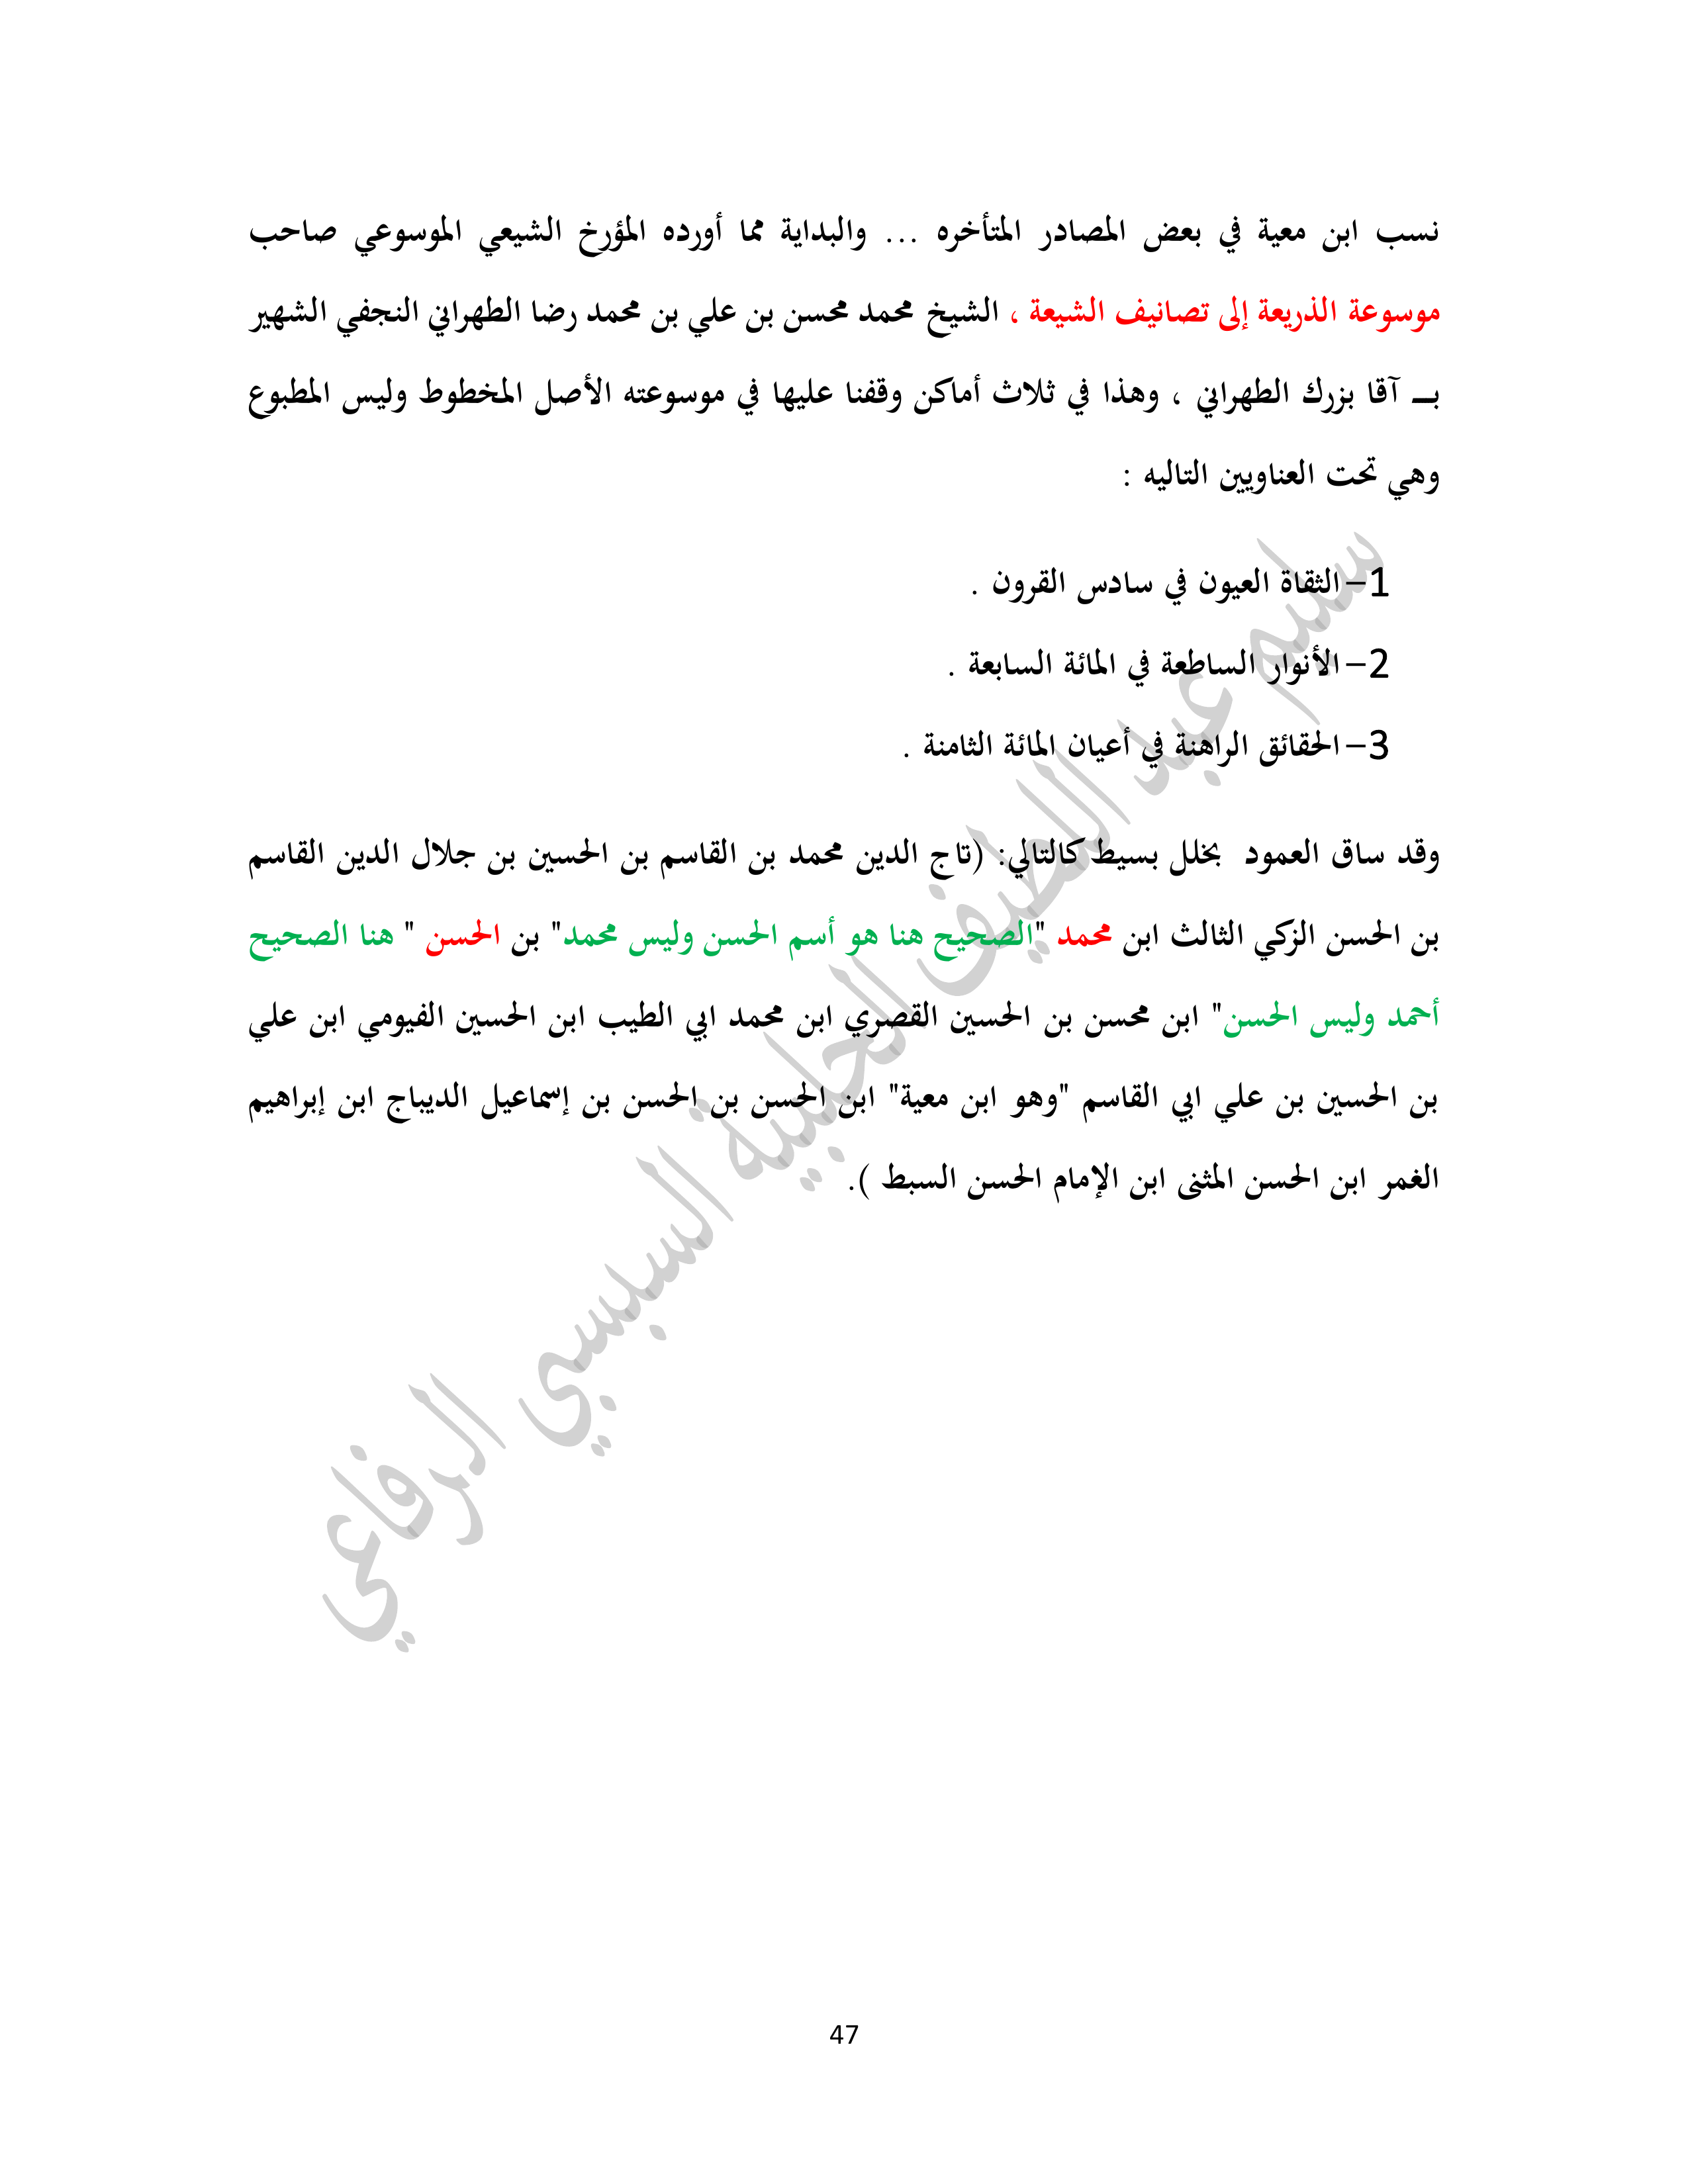 نسب ابن معية في بعض المصادر المتأخره ... والبداية مما أورده المؤرخ الشيعي الموسوعي صاحب
موسوعة الذريعة إلى تصانيف الشيعة ، الشيخ محمد محسن بن علي بن محمد رضا الطهراني النجفي الشهير
بـ آقا بزرك الطهراني ، وهذا في ثلاث أماكن وقفنا عليها في موسوعته الأصل المخطوط وليس المطبوع
وهي تحت العناويين التاليه :
1- الثقاة العيون في سادس القرون .
2- الأنوار الساطعة في المائة السابعة .
3- الحقائق الراهنة في أعيان المائة الثامنة .
وقد ساق العمود بخلل بسيط كالتالي: (تاج الدين محمد بن القاسم بن الحسين بن جلال الدين القاسم
بن الحسن الزكي الثالث ابن محمد "الصحيح هنا هو أسم الحسن وليس محمد" بن الحسن " هنا الصحيح
أحمد وليس الحسن" ابن محسن بن الحسين القصري ابن محمد ابي الطيب ابن الحسين الفيومي ابن علي
بن الحسين بن علي ابي القاسم "وهو ابن معية" ابن الحسن بن الحسن بن إسماعيل الديباج ابن إبراهيم
الغمر ابن الحسن المثنى ابن الإمام الحسن السبط ).
سليم عبد اللطيف الحلبية السبسبي الرفاعي
47